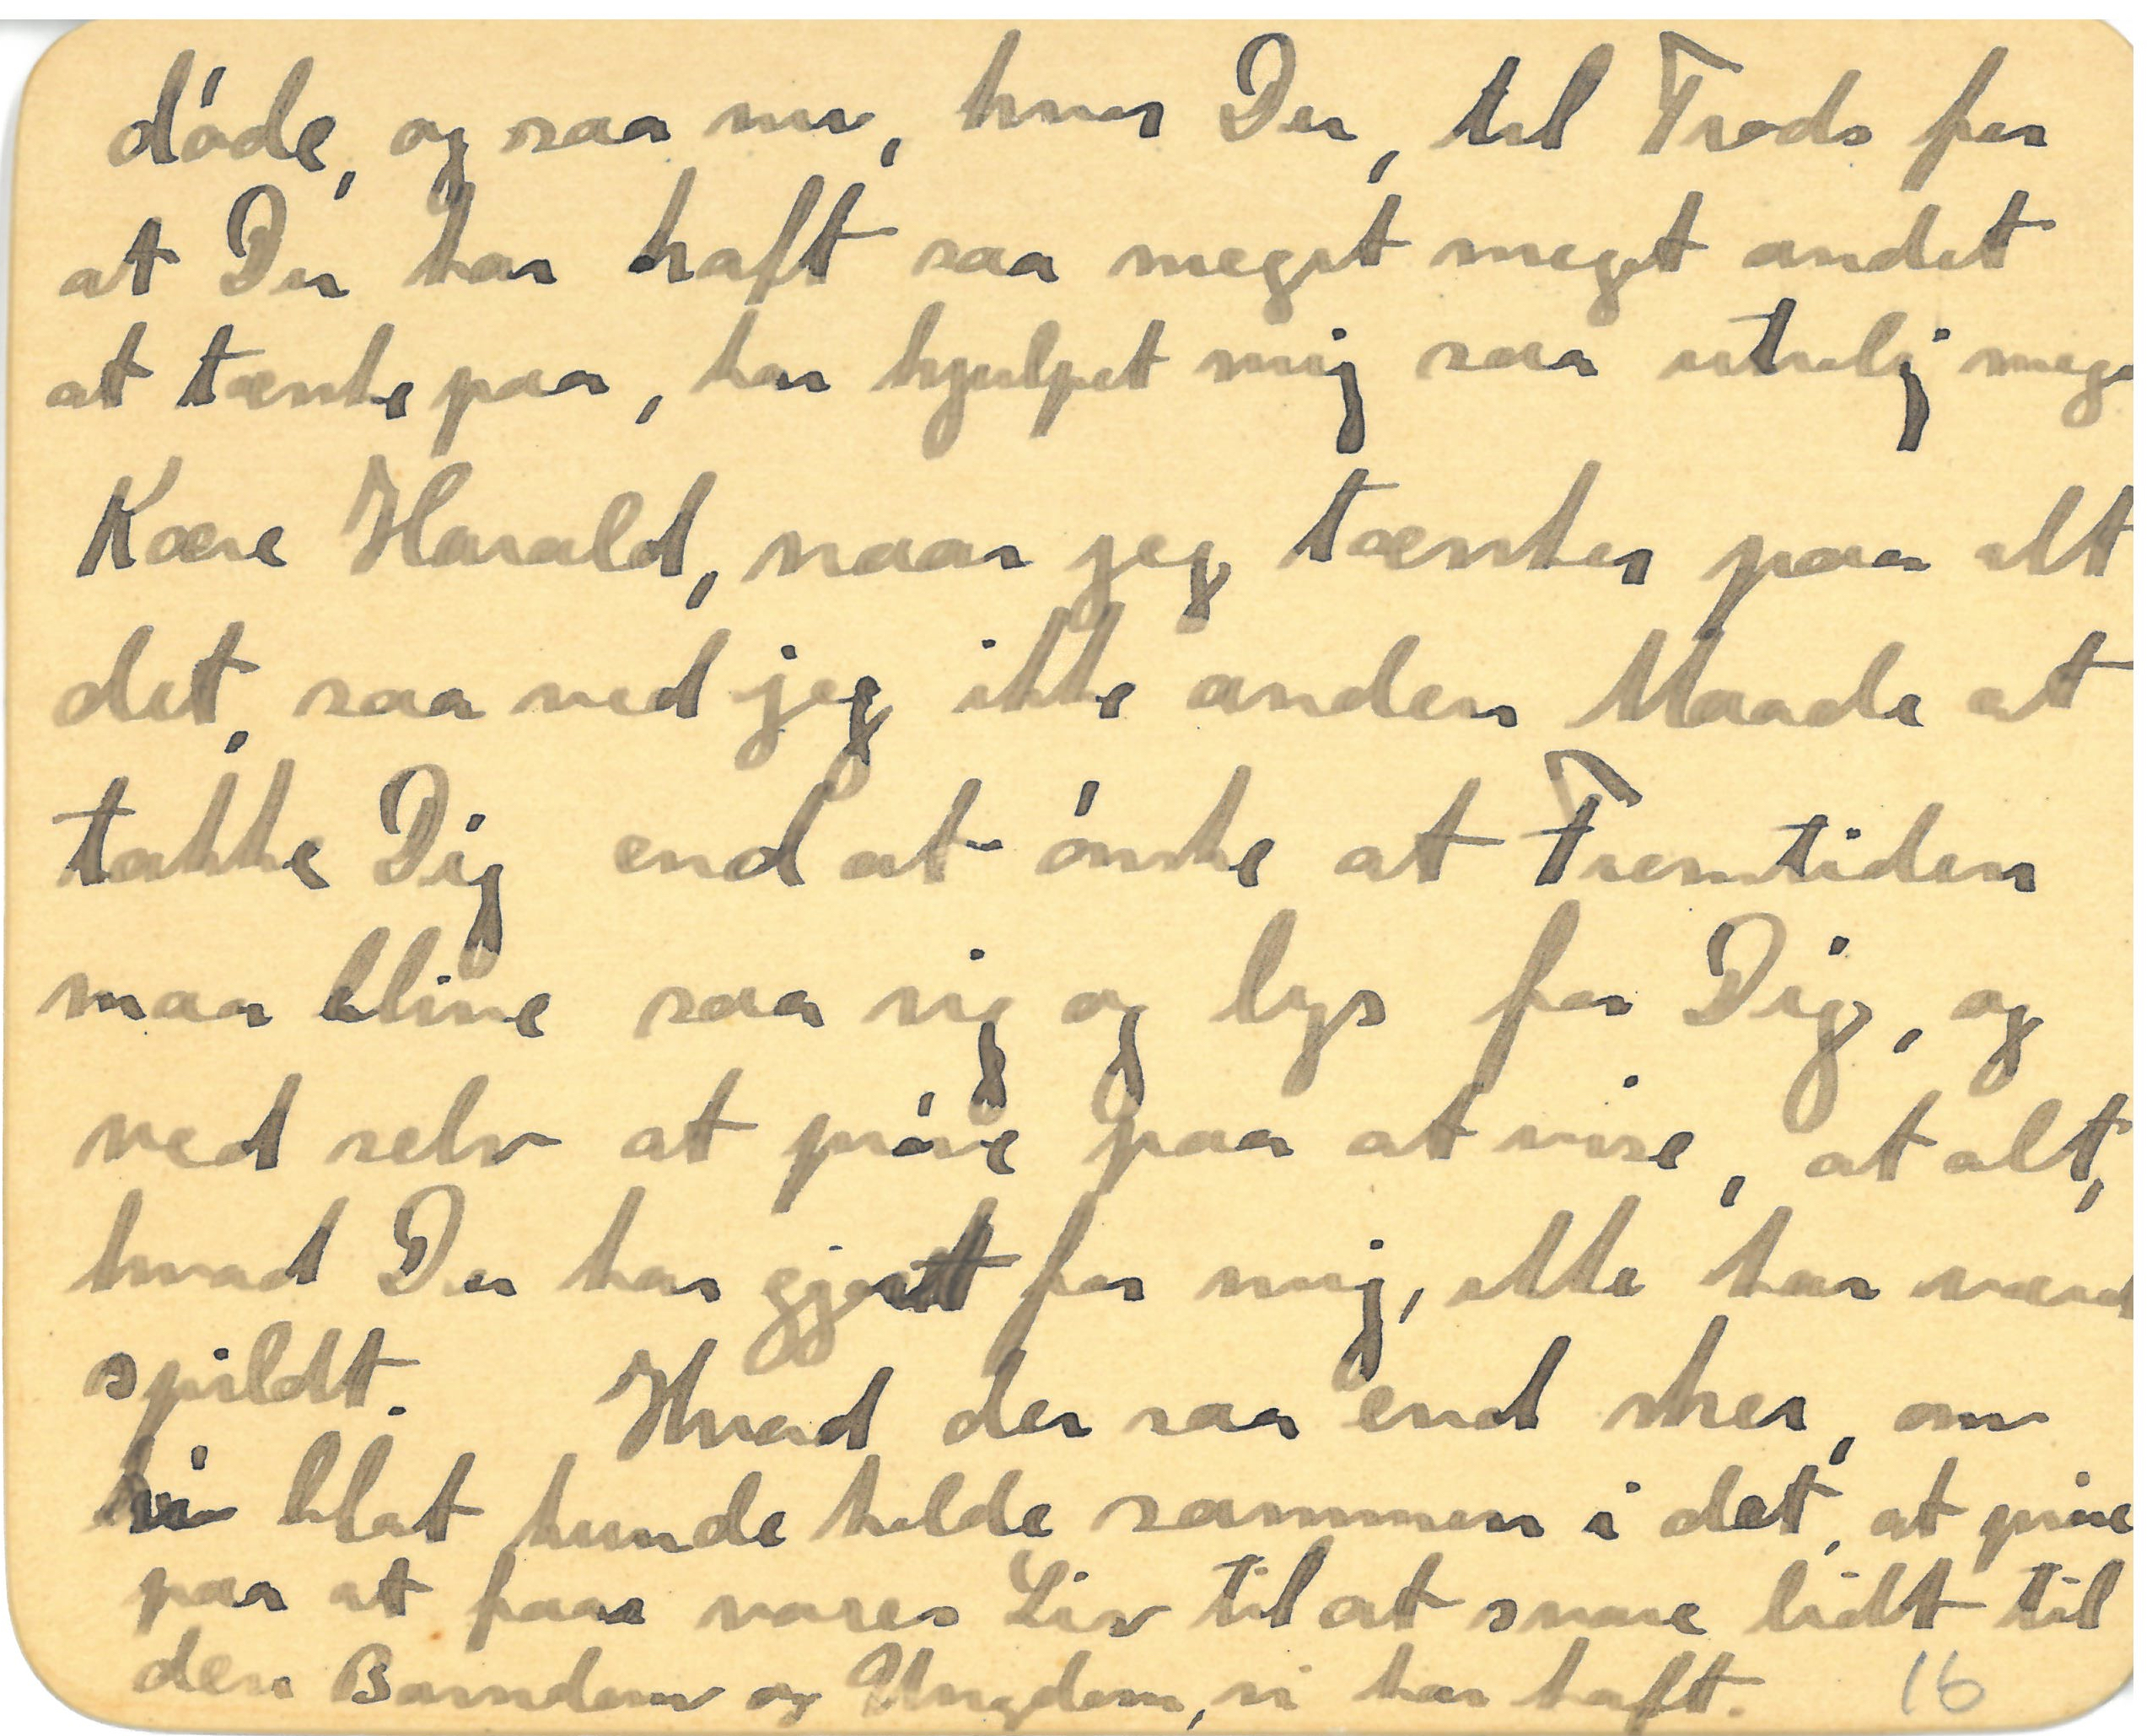 døde, og saa nu, hvor Du, til Trods for
at Du har haft saa meget meget andet
at tænke paa, har hjulpet mig saa utrolig mege
Kære Harald, naar jeg tænker paa alt
det, saa ved jeg ikke anden Maade at
takke Dig end at ønske at Fremtiden
maa blive saa rig og lys for Dig, og
ved selv at prøve paa at vise, at alt,
hvad Du har gjort for mig, ikke har været
spildt. Hvad der saa end sker, om
vi blot kunde holde sammen i det, at prøve
paa at faa vores Liv til at svare lidt til
den Barndom og Ungdom, vi har haft. 16